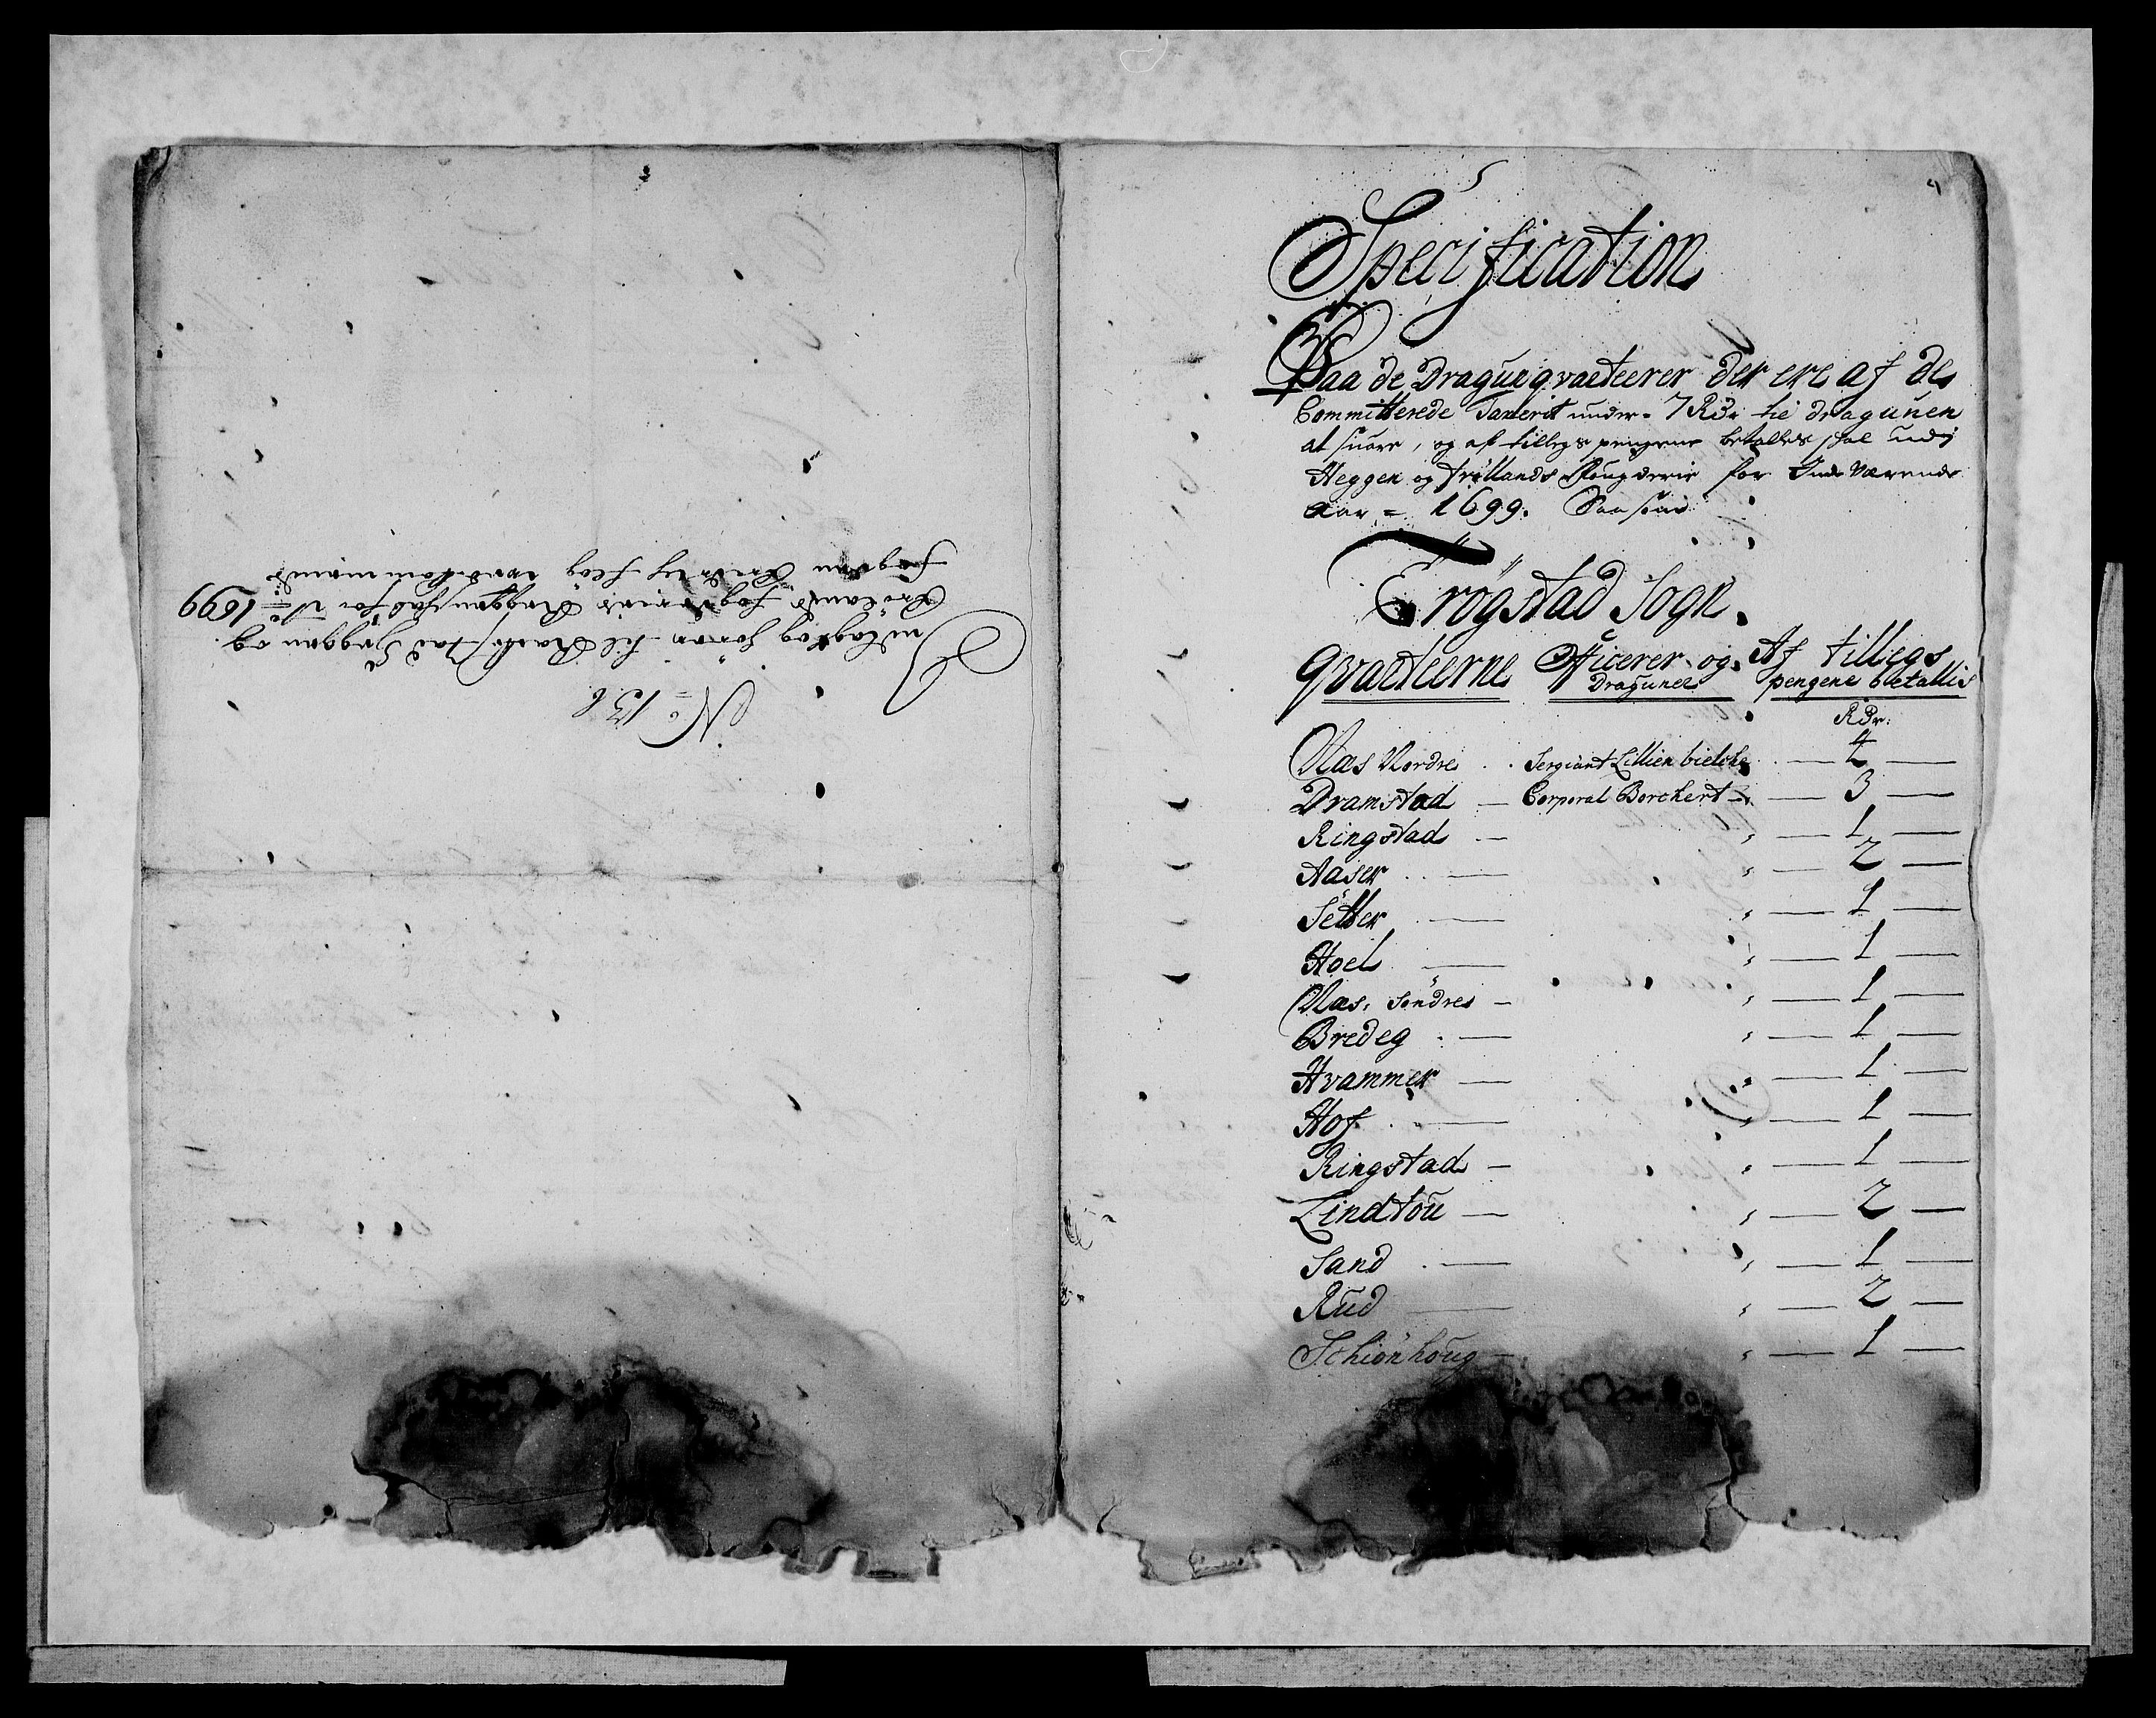 N.o 138
Indlagt og hörer til Raadstad Heggen og
Frölands fogderies Regenskab for Ao 1699
fogden Anders
Specification
Paa de Dragunqvarteerer der ere af de
Committerede Taxerit under = 7 Rdr til dragunen
at suare, og af tillegs pengene betalles skal udj
Heggen og Frøllands Fougderie for Inde Værende
Aar = 1699. Saasom
Trögstad Sogn.
Qvarteerne Officerer og Draguner Af tillegs pengene betallis
Rdr:
Næs Nordre - Sergiant Lillienbielche - 4 -
Dramstad - Corporal Borchert - 3 -
Ringstad - " - 1 -
Aaser - " - 2 -
Setter - " - 1 -
Hoel - " - 1 -
Næs, Söndre - " - 1 -
Bredeg - " - 1 -
Hvammer - " - 1 -
Hof - " - 1 -
Ringstad - " - 1 -
Lindtou - " - 2 -
Sand - " - 1 -
Rud - " - 2 -
Schiönhoug - " - 1 -